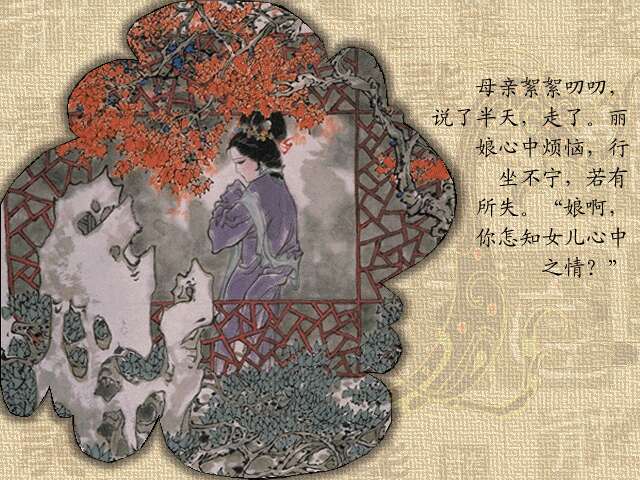 母亲絮絮叨叨，
说了半天，走了。丽
娘心中烦恼，行
坐不宁，若有
所失。“娘啊，
你怎知女儿心中
之情？”